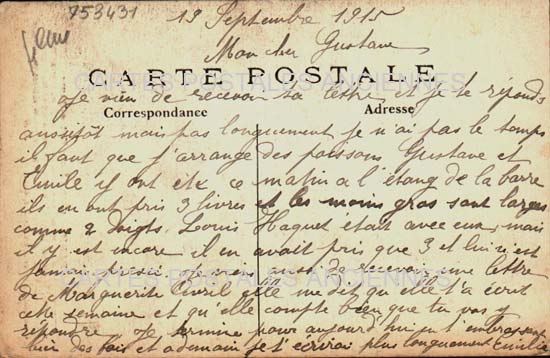 753431
19 Septembre 1915
Mon cher Gustave
CARTE POSTALE
CARTES POSTALES ANCIENNES
Je vien de recevoir ta lettre et je te réponds
Correspondance Adresse
aussitôt mais pas longuement je n'ai pas le temps
il faut que j'arrange des poissons Gustave et
Emile y ont été ce matin a l'étang de la barre
ils en ont pris 3 livres et les moins gros sont larges
comme 2 doigts. Louis Haquet était avec eux, mais
il y est encore il en avait pris que 3 et lui n'est
jamais pressé. Je viens aussi de recevoir une lettre
CARTES POSTALES ANCIENNES
de Marguerite elle me dit qu'elle t'a écrit
cette semaine et qu'elle compte bien que tu vas y
répondre. Je termine pour aujourd'hui je t'embrasse
bien des fois et a demain je t'écrirai plus longuement Emilie